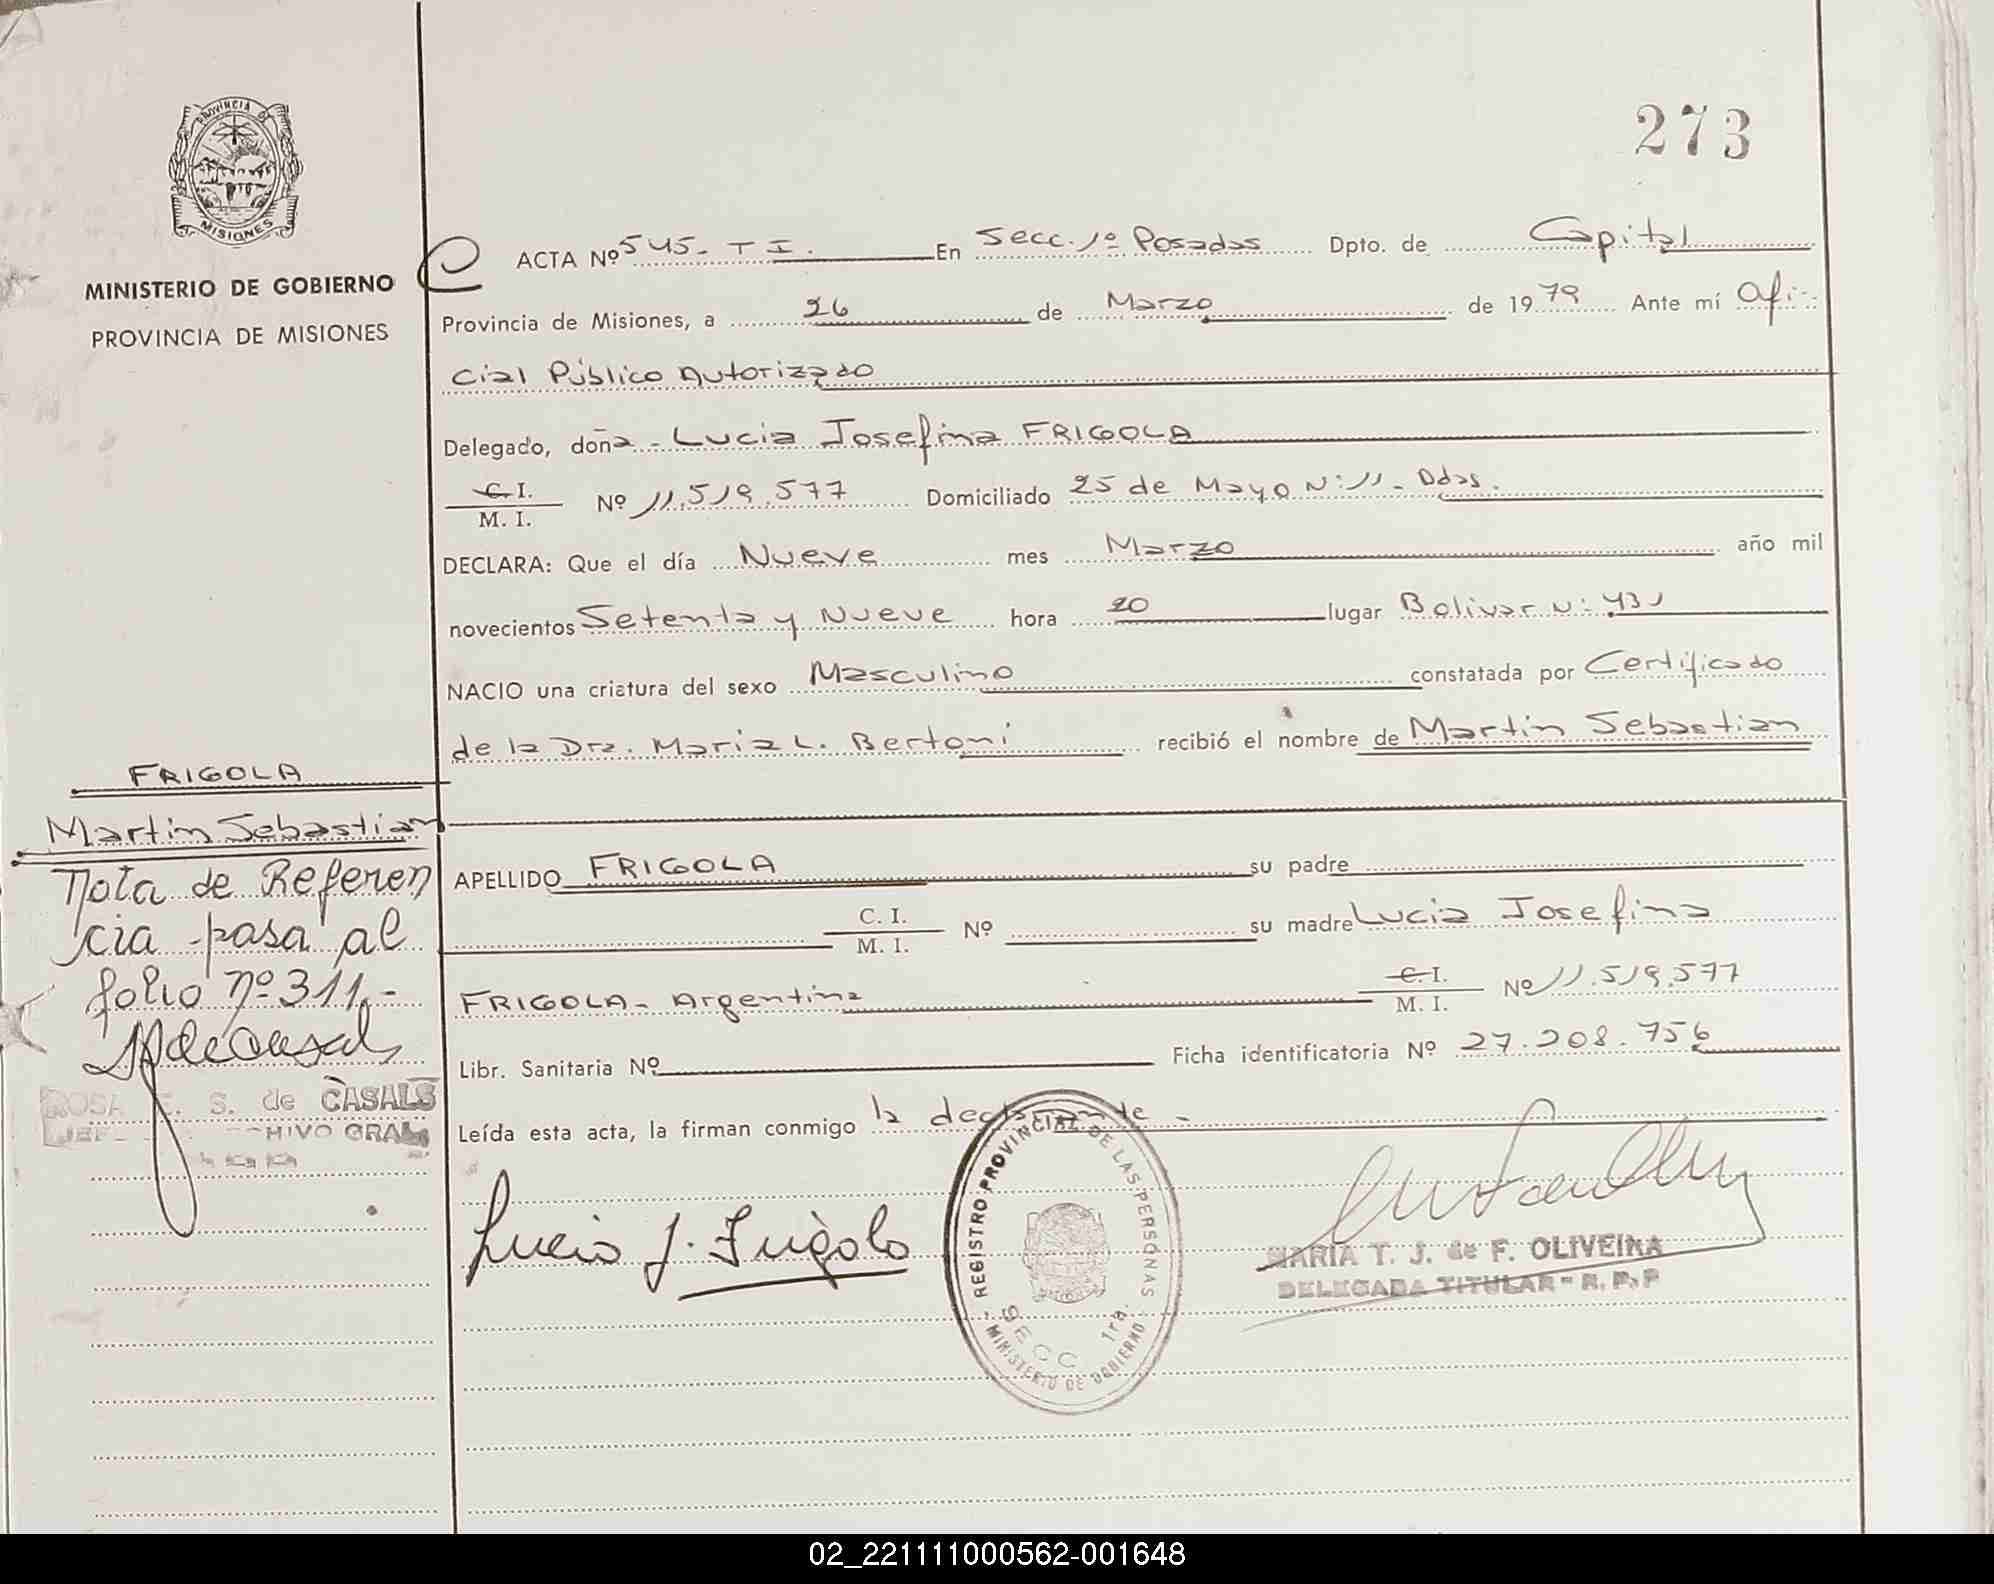 273
PROVINCIA DE
MISIONES
MINISTERIO DE GOBIERNO
PROVINCIA DE MISIONES
ACTA Nº 545- T I. En Secc. 1º Posadas Dpto. de Capital
Provincia de Misiones, a 26 de Marzo de 1979 Ante mí Ofi-
cial Público Autorizado
Delegado, doña - Lucia Josefina FRIGOLA
C. I.
M. I. Nº 11.519.577 Domiciliado 25 de Mayo N:11- Pdas.
DECLARA: Que el día Nueve mes Marzo año mil
novecientos Setenta y Nueve hora 20 lugar Bolivar N: 431
NACIO una criatura del sexo Masculino constatada por Certificado
de la Dra. Maria L. Bertoni recibió el nombre de Martin Sebastian
APELLIDO FRIGOLA su padre
C. I.
M. I. Nº su madre Lucia Josefina
FRIGOLA- Argentina C. I.
M. I. Nº 11.519.577
Libr. Sanitaria Nº Ficha identificatoria Nº 27.208.756
Leída esta acta, la firman conmigo la declarante -
Lucia J. Frigola
REGISTRO PROVINCIAL DE LAS PERSONAS
SECC. 1ra.
MINISTERIO DE GOBIERNO
MARIA T. J. de F. OLIVEIRA
DELEGADA TITULAR - R. P. P
FRIGOLA
Martin Sebastian
Nota de Referen
cia pasa al
folio Nº 311.-
ROSA S. de CASALS
GRAL
02_221111000562-001648